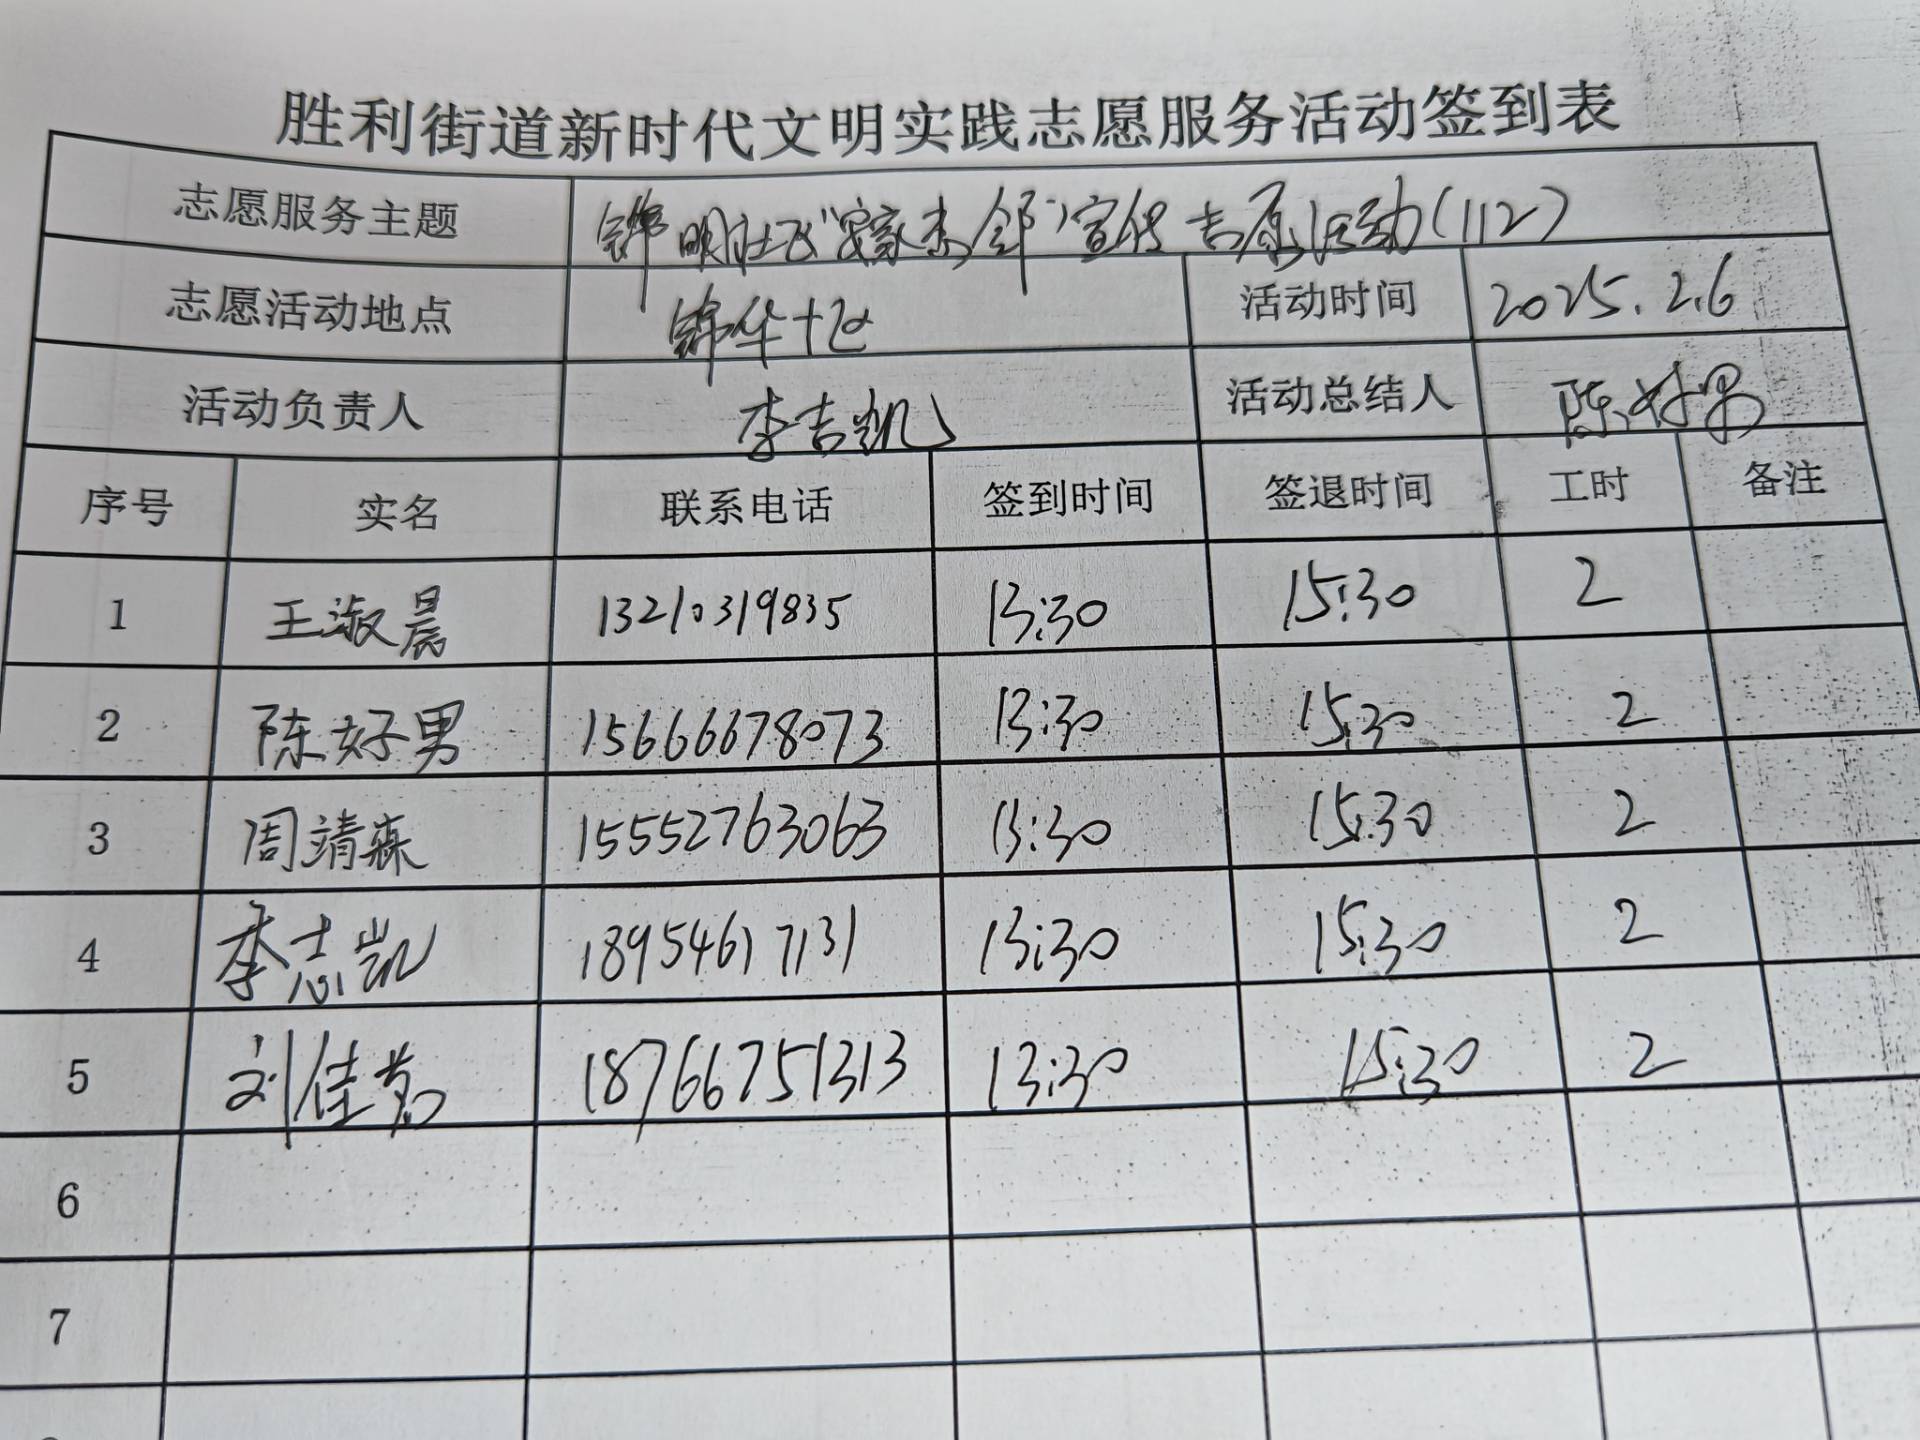 胜利街道新时代文明实践志愿服务活动签到表
志愿服务主题 锦明社区 宣传志愿活动(112)
志愿活动地点 锦华十区 活动时间 2025.2.6
活动负责人 李志凯 活动总结人 陈好男
序号 实名 联系电话 签到时间 签退时间 工时 备注
1 王淑晨 13210319835 13:30 15:30 2
2 陈好男 15666678073 13:30 15:30 2
3 周靖森 15552763063 13:30 15:30 2
4 李志凯 18954617131 13:30 15:30 2
5 刘佳 18766751313 13:30 15:30 2
6
7